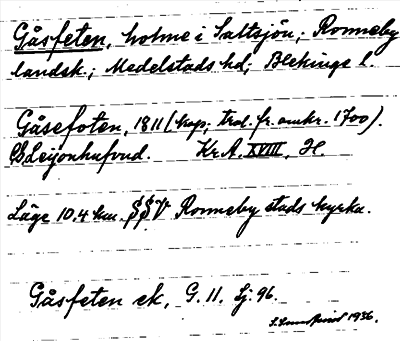 Gåsfeten, holme i Saltsjön; Ronneby
landsk.; Medelstads hd; Blekinge l.
Gåsefoten, 1811 (kop; trol. fr. omkr. 1700).
Leijonhufvud. Kr.A. XVIII, H.
Läge 10.4 km. §§V Ronneby stads kyrka.
Gåsfeten ek, G. 11. Lj. 96.
1936.